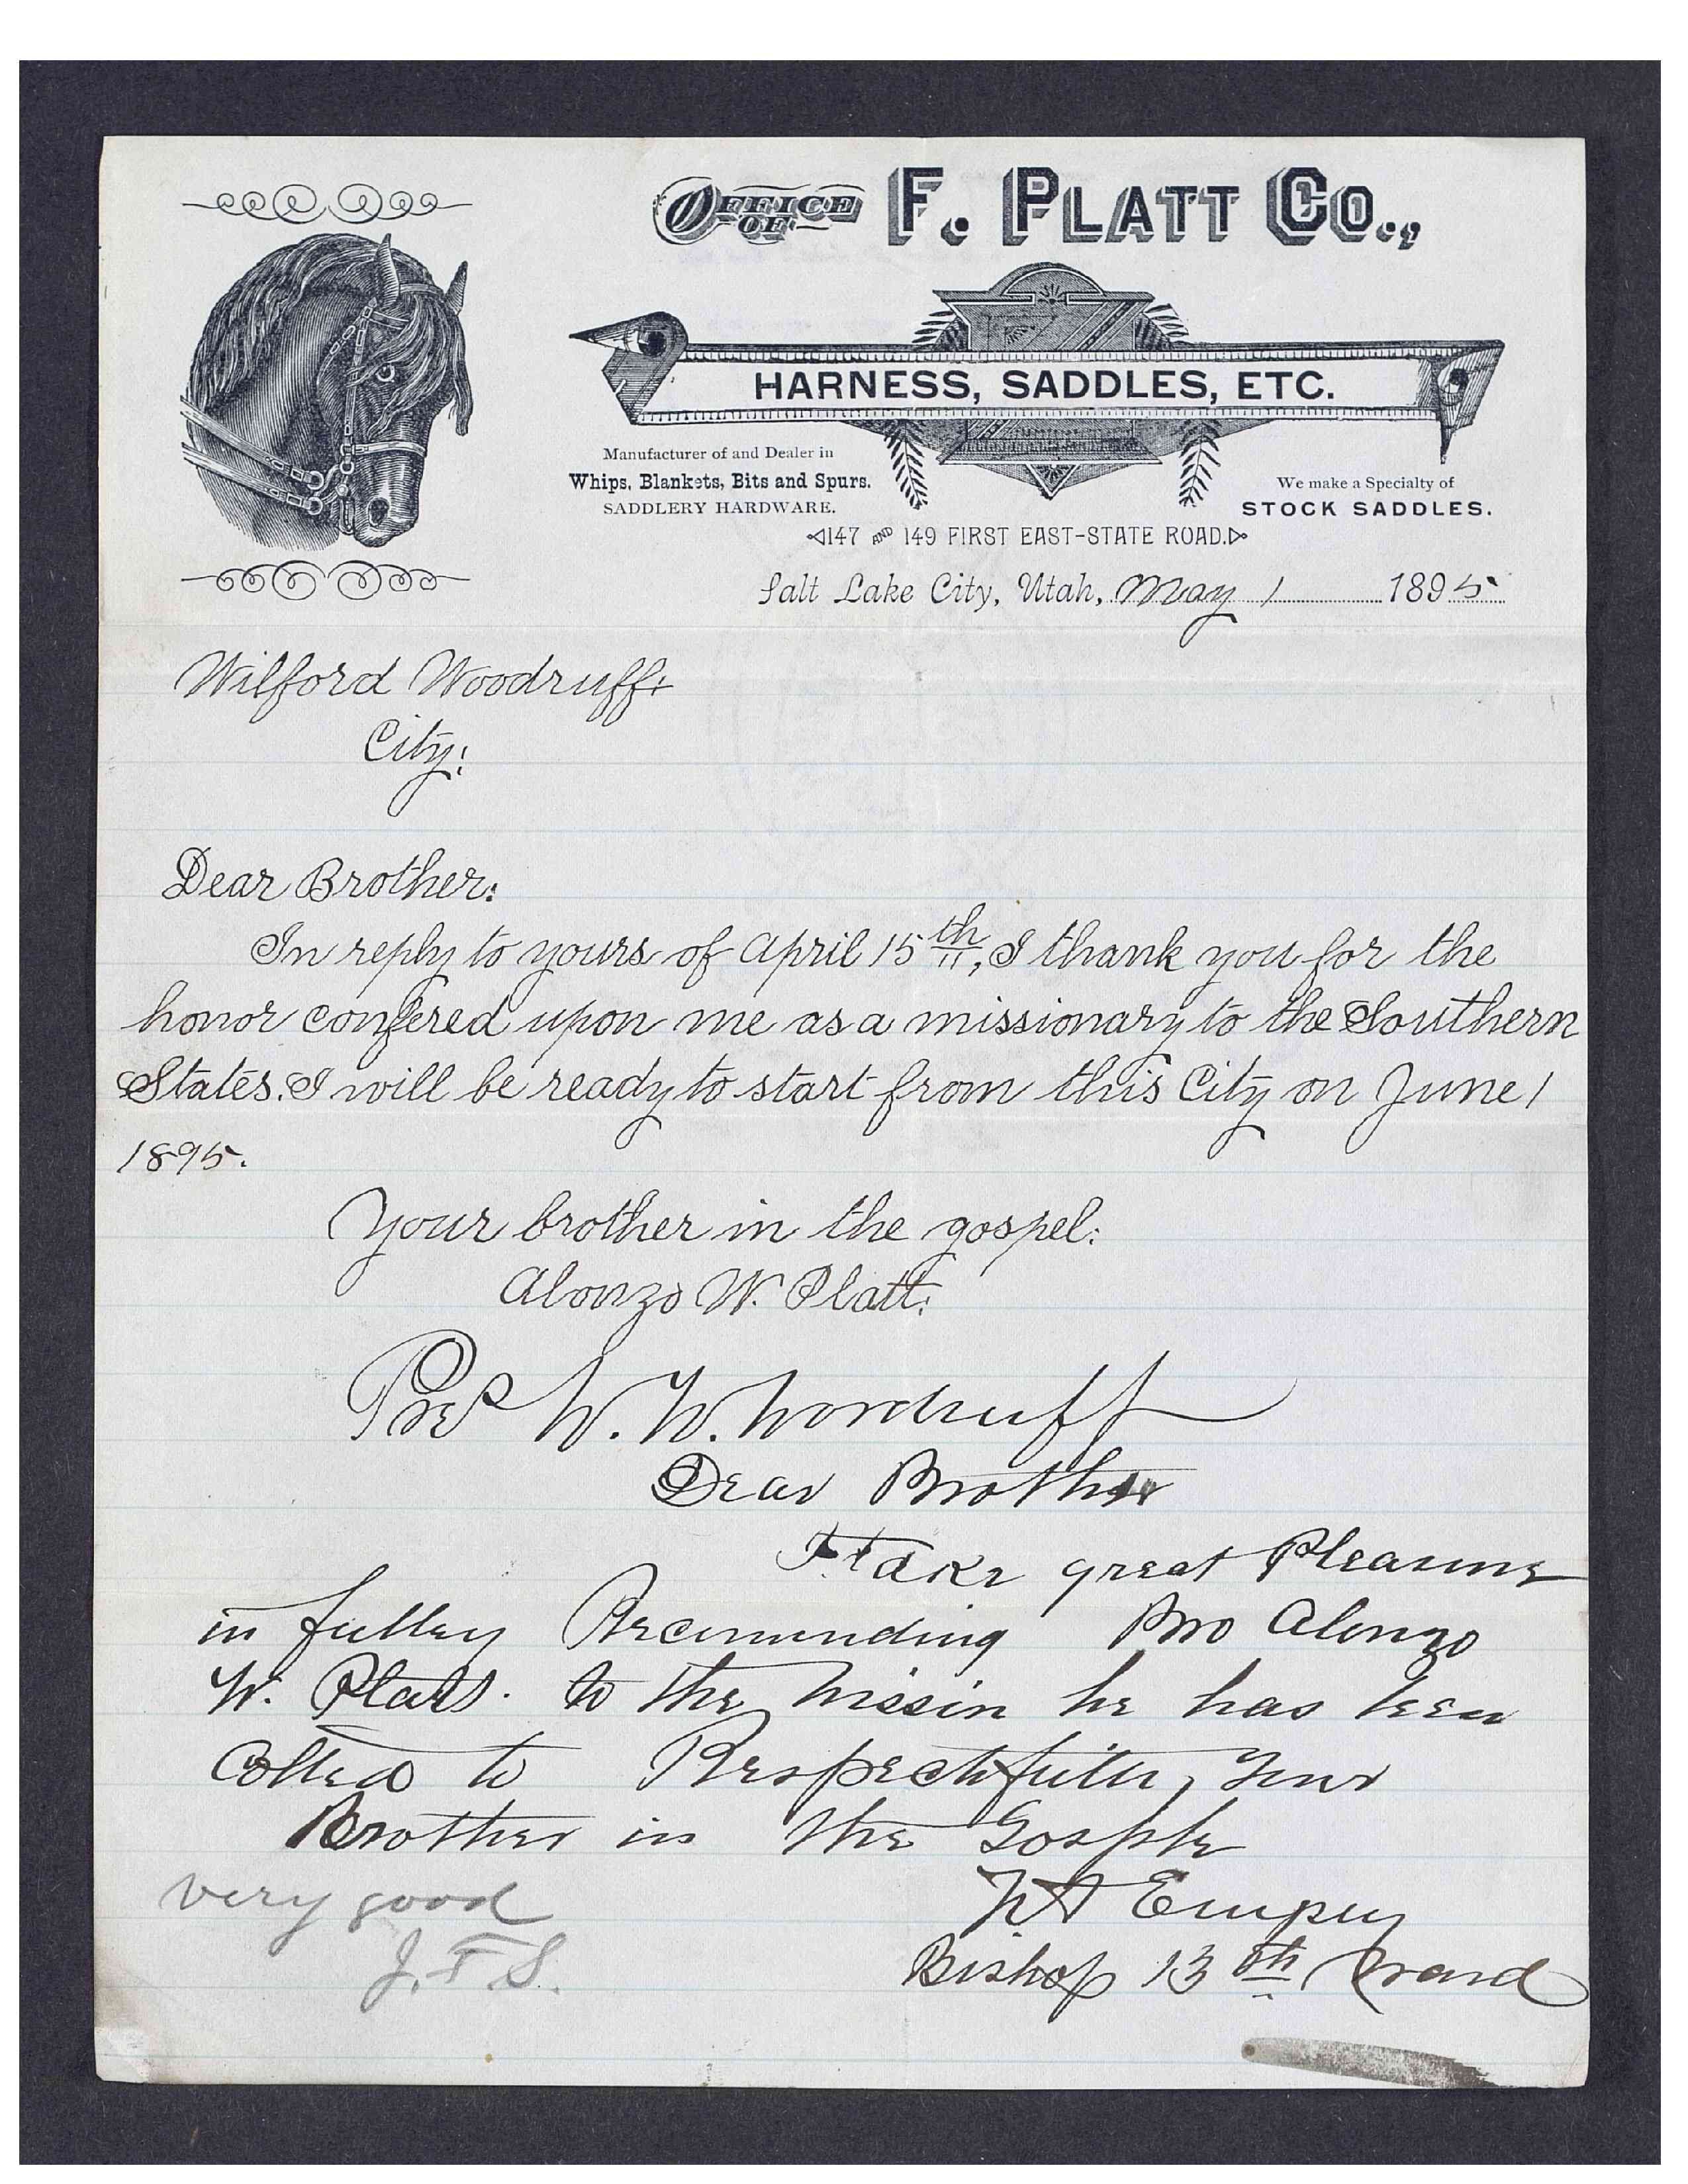 OFFICE OF F. PLATT CO.,
HARNESS, SADDLES, ETC.
Manufacturer of and Dealer in
Whips, Blankets, Bits and Spurs.
SADDLERY HARDWARE.
We make a Specialty of
STOCK SADDLES.
147 AND 149 FIRST EAST-STATE ROAD.
Salt Lake City, Utah, May 1 1895
Wilford Woodruff:
City:
Dear Brother:
In reply to yours of April 15th, I thank you for the
honor confered upon me as a missionary to the Southern
States. I will be ready to start from this City on June 1
1895.
Your brother in the gospel:
Alonzo W. Platt.
Pres W. W. Woodruff
Dear Brother
I take great Pleasure
in fulley Recomending Bro Alonzo
W. Platt. to the Missin he has been
Colled to Respectfully Your
Brother in the Gosple
Empey
Bishop 13th Ward
very good
J. F. S.